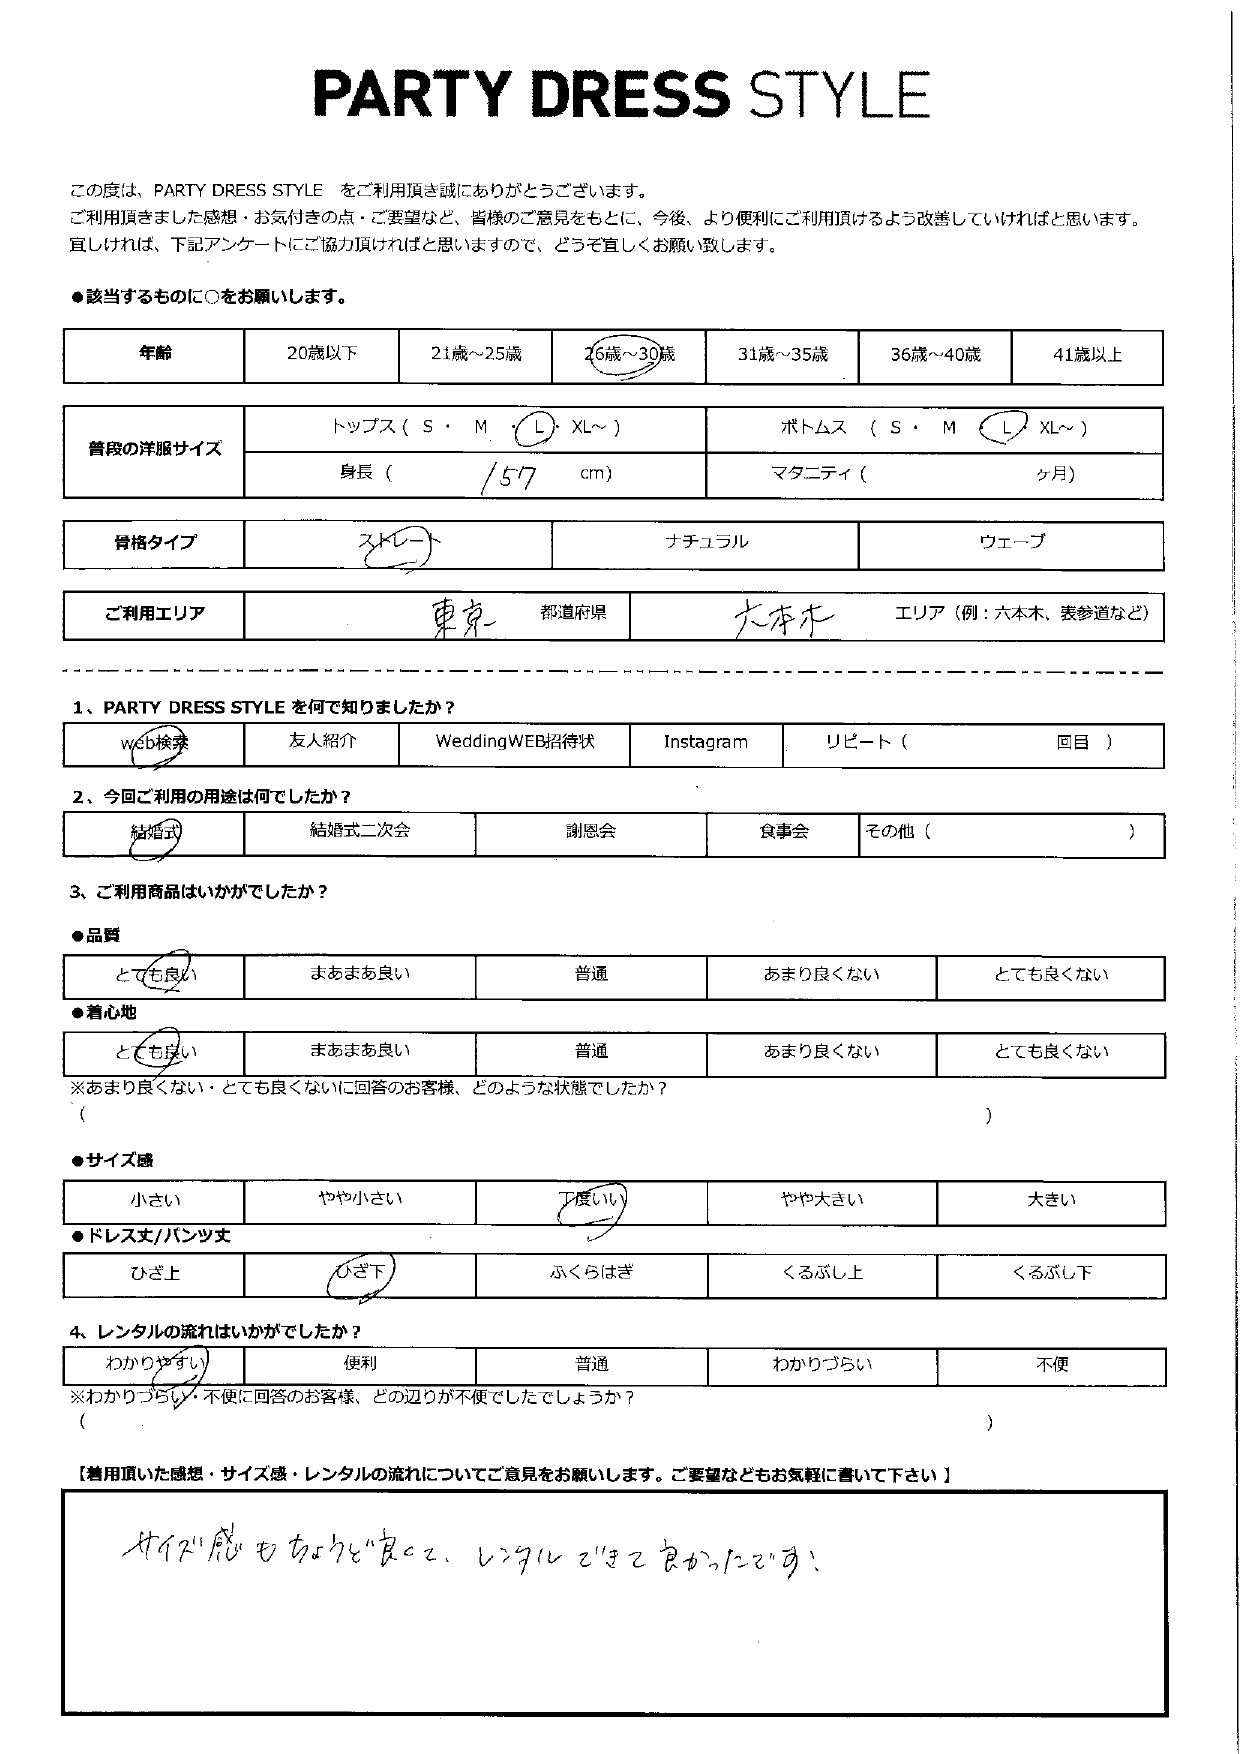 PARTY DRESS STYLE
この度は、PARTY DRESS STYLE　をご利用頂き誠にありがとうございます。
ご利用頂きました感想・お気付きの点・ご要望など、皆様のご意見をもとに、今後、より便利にご利用頂けるよう改善していければと思います。
宜しければ、下記アンケートにご協力頂ければと思いますので、どうぞ宜しくお願い致します。
●該当するものに○をお願いします。
年齢 20歳以下 21歳～25歳 26歳～30歳 31歳～35歳 36歳～40歳 41歳以上
普段の洋服サイズ トップス ( S ・ M ・ L ・ XL～ ) ボトムス ( S ・ M ・ L ・ XL～ )
身長 ( 157 cm) マタニティ ( ヶ月)
骨格タイプ ストレート ナチュラル ウェーブ
ご利用エリア 東京 都道府県 六本木 エリア（例：六本木、表参道など）
1、PARTY DRESS STYLE を何で知りましたか？
web検索 友人紹介 WeddingWEB招待状 Instagram リピート ( 回目 )
2、今回ご利用の用途は何でしたか？
結婚式 結婚式二次会 謝恩会 食事会 その他 ( )
3、ご利用商品はいかがでしたか？
●品質
とても良い まあまあ良い 普通 あまり良くない とても良くない
●着心地
とても良い まあまあ良い 普通 あまり良くない とても良くない
※あまり良くない・とても良くないに回答のお客様、どのような状態でしたか？
( )
●サイズ感
小さい やや小さい 丁度いい やや大きい 大きい
●ドレス丈/パンツ丈
ひざ上 ひざ下 ふくらはぎ くるぶし上 くるぶし下
4、レンタルの流れはいかがでしたか？
わかりやすい 便利 普通 わかりづらい 不便
※わかりづらい・不便に回答のお客様、どの辺りが不便でしたでしょうか？
( )
【着用頂いた感想・サイズ感・レンタルの流れについてご意見をお願いします。ご要望などもお気軽に書いて下さい 】
サイズ感もちょうど良くて、レンタルできて良かったです！